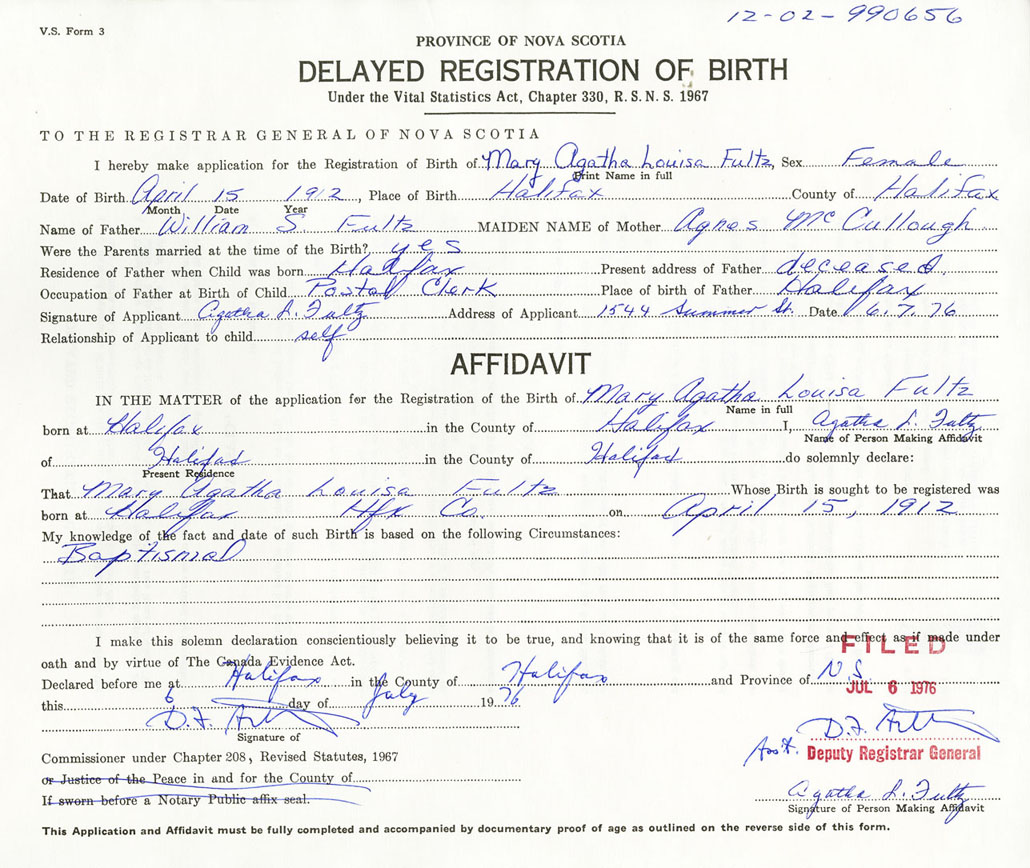 12-02-990656
V.S. Form 3
PROVINCE OF NOVA SCOTIA
DELAYED REGISTRATION OF BIRTH
Under the Vital Statistics Act, Chapter 330, R.S.N.S. 1967
TO THE REGISTRAR GENERAL OF NOVA SCOTIA
I hereby make application for the Registration of Birth of Mary Agatha Louisa Fultz, Sex Female
Print Name in full
Date of Birth April 15 1912, Place of Birth Halifax County of Halifax
Month Date Year
Name of Father William S Fultz MAIDEN NAME of Mother Agnes McCullough
Were the Parents married at the time of the Birth? yes
Residence of Father when Child was born Halifax Present address of Father deceased
Occupation of Father at Birth of Child Postal Clerk Place of birth of Father Halifax
Signature of Applicant Agatha L. Fultz Address of Applicant 1544 Summer St. Date 6.7.76
Relationship of Applicant to child self
AFFIDAVIT
IN THE MATTER of the application for the Registration of the Birth of Mary Agatha Louisa Fultz
Name in full
born at Halifax in the County of Halifax I, Agatha L. Fultz
Name of Person Making Affidavit
of Halifax in the County of Halifax do solemnly declare:
Present Residence
That Mary Agatha Louisa Fultz Whose Birth is sought to be registered was
born at Halifax Hfx Co. on April 15, 1912
My knowledge of the fact and date of such Birth is based on the following Circumstances:
Baptismal
I make this solemn declaration conscientiously believing it to be true, and knowing that it is of the same force and effect as if made under
oath and by virtue of The Canada Evidence Act.
FILED
Declared before me at Halifax in the County of Halifax and Province of N.S.
JUL 6 1976
this 6 day of July 1976
D.F.
Signature of
D.F.
Commissioner under Chapter 208, Revised Statutes, 1967
Ass't. Deputy Registrar General
or Justice of the Peace in and for the County of
If sworn before a Notary Public affix seal.
Agatha L. Fultz
Signature of Person Making Affidavit
This Application and Affidavit must be fully completed and accompanied by documentary proof of age as outlined on the reverse side of this form.